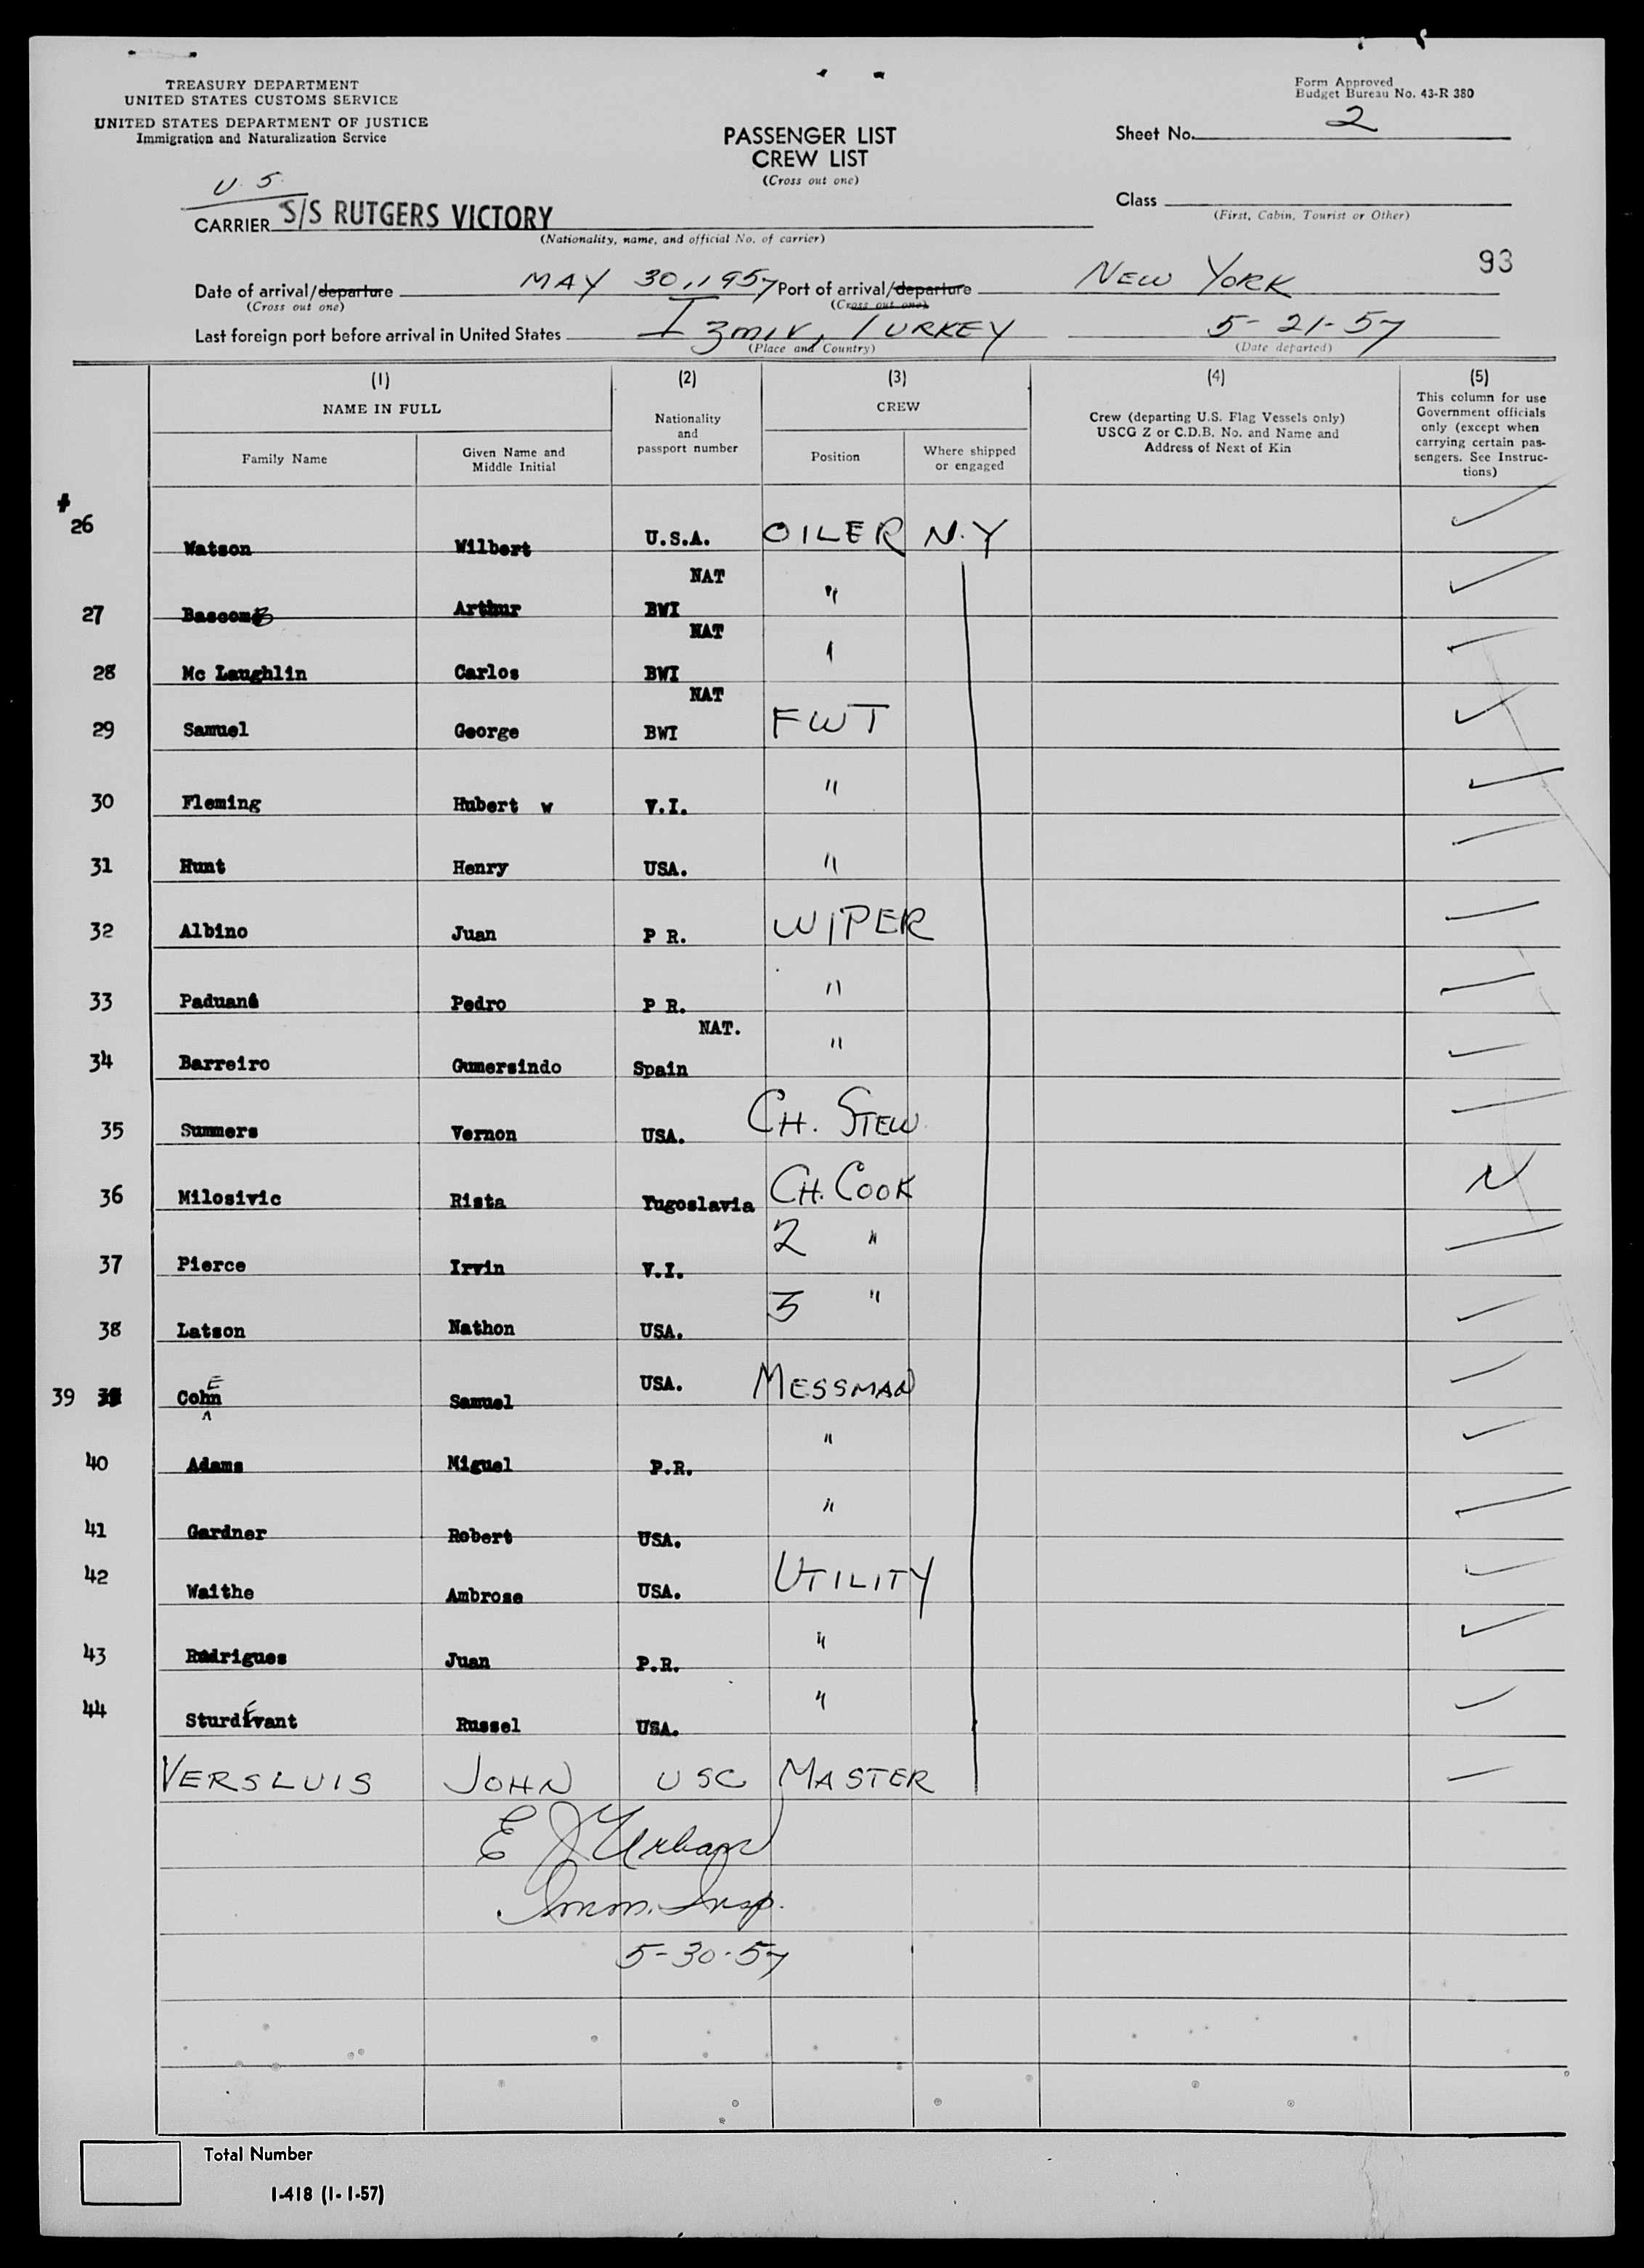 TREASURY DEPARTMENT
UNITED STATES CUSTOMS SERVICE
UNITED STATES DEPARTMENT OF JUSTICE
Immigration and Naturalization Service
PASSENGER LIST
CREW LIST
(Cross out one)
Form Approved
Budget Bureau No. 43-R 380
Sheet No. 2
U.S.
CARRIER S/S RUTGERS VICTORY
(Nationality, name, and official No. of carrier)
Class
(First, Cabin, Tourist or Other)
93
Date of arrival/departure MAY 30, 1957 Port of arrival/departure NEW YORK
(Cross out one) (Cross out one)
Last foreign port before arrival in United States Izmir, TURKEY 5-21-57
(Place and Country) (Date departed)
(1) (2) (3) (4) (5)
NAME IN FULL
Family Name
Given Name and Middle Initial
Nationality and passport number
CREW
Position
Where shipped or engaged
Crew (departing U.S. Flag Vessels only)
USCG Z or C.D.B. No. and Name and
Address of Next of Kin
This column for use
Government officials
only (except when
carrying certain pas-
sengers. See Instruc-
tions)
26 Watson Wilbert U.S.A. OILER N.Y
NAT
27 Bascomb Arthur BWI "
NAT
28 Mc Laughlin Carlos BWI "
NAT
29 Samuel George BWI FWT
30 Fleming Hubert w V.I. "
31 Hunt Henry USA. "
32 Albino Juan P R. WIPER
33 Paduani Pedro P R. "
NAT.
34 Barreiro Gumersindo Spain "
35 Summers Vernon USA. CH. STEW.
36 Milosivic Rista Yugoslavia CH. COOK N
37 Pierce Irvin V.I. 2 "
38 Latson Nathon USA. 3 "
39 Cohen Samuel USA. MESSMAN
40 Adams Miguel P.R. "
41 Gardner Robert USA. "
42 Waithe Ambrose USA. UTILITY
43 Rodrigues Juan P.R. "
44 Sturdevant Russel USA. "
VERSLUIS JOHN USC MASTER
E J Urban
Imm. Insp.
5-30-57
Total Number
I-418 (1-1-57)